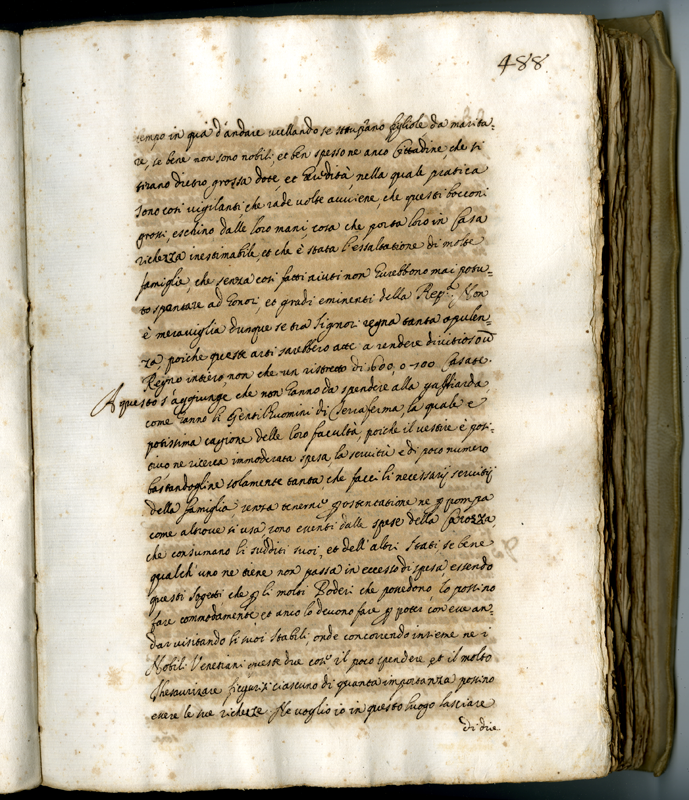 488
tempo in qua d'andare uccellando se ui siano figliole da marita-
re, se bene non sono nobili, et ben spesso ne anco Cittadine, che si
tirano dietro grossa dote, et heredità, nella quale pratica
sono così vigilanti, che rade volte avviene, che questi bocconi
grossi, eschino dalle loro mani, cosa che porta loro in Casa
richezza inestimabile, et che è stata l'essaltatione di molte
famiglie, che senza così fatti aiuti non havrebbono mai potu-
to spontare ad honori, et gradi eminenti della Rep.ca, Non
è meraviglia dunque se tra signori regna tanta opulen-
za poiche queste arti sarebbero atte a rendere divitioso un
Regno intiero non che un ristretto di 600, o 700 Casate.
A questo s'aggiunge che non hanno da spendere alla gagliarda
come hanno li Gentilhuomini di Terraferma, la quale è
potissima cagione delle loro facultà, poiche il vestire è posi-
tivo ne ricerca immoderata spesa, la servitù è di poco numero
bastandogline solamente tanta che facci li necessarij servitij
della famiglia senza tenerni p ostentatione ne p pompa
come altrove si usa, sono esenti dalle spese della Carozza
che consumano li sudditi suoi, et dell'altri stati se bene
qualch'uno ne tiene non passa in eccesso di spesa essendo
questi sogetti che p li molti Poderi che possedono, lo possono
fare commodamente, et anco lo devono fare p poter con esse an-
dar visitando li suoi stabili onde concorrendo insieme ne i
Nobili Venetiani queste due cose il poco spendere, et il molto
thesaurizare ciascuno di quanta importanza possino
essere le sue richezze. Ne voglio io in questo luogo lasciare
di dire